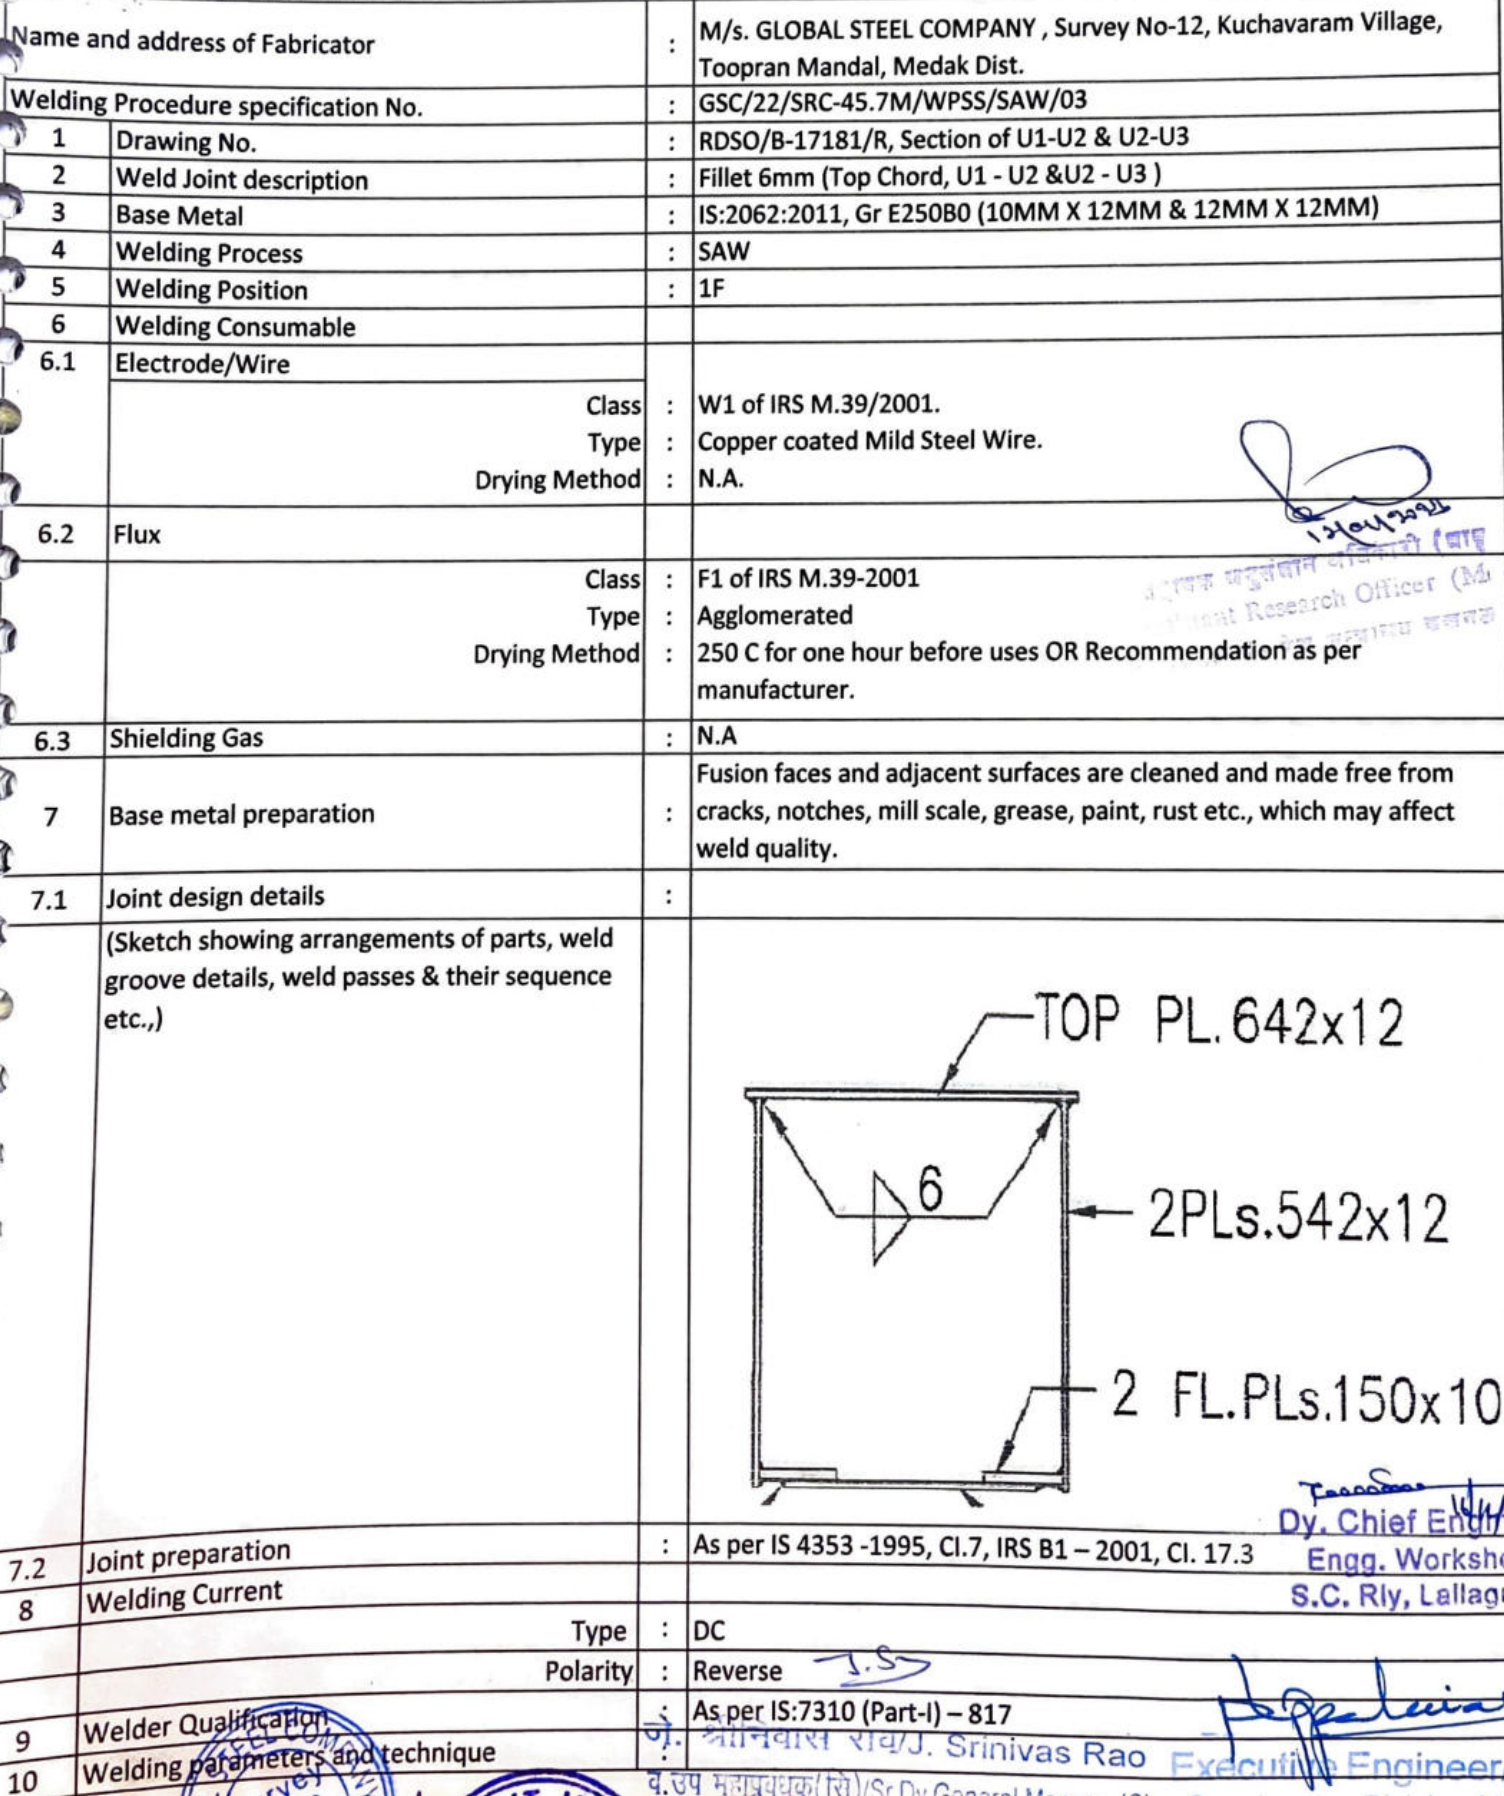 Name and address of Fabricator : M/s. GLOBAL STEEL COMPANY , Survey No-12, Kuchavaram Village,
Toopran Mandal, Medak Dist.
Welding Procedure specification No. : GSC/22/SRC-45.7M/WPSS/SAW/03
1 Drawing No. : RDSO/B-17181/R, Section of U1-U2 & U2-U3
2 Weld Joint description : Fillet 6mm (Top Chord, U1 - U2 &U2 - U3 )
3 Base Metal : IS:2062:2011, Gr E250B0 (10MM X 12MM & 12MM X 12MM)
4 Welding Process : SAW
5 Welding Position : 1F
6 Welding Consumable
6.1 Electrode/Wire
Class : W1 of IRS M.39/2001.
Type : Copper coated Mild Steel Wire.
Drying Method : N.A.
6.2 Flux
Class : F1 of IRS M.39-2001
Research Officer
Type : Agglomerated
Drying Method : 250 C for one hour before uses OR Recommendation as per
manufacturer.
6.3 Shielding Gas : N.A
7 Base metal preparation : Fusion faces and adjacent surfaces are cleaned and made free from
cracks, notches, mill scale, grease, paint, rust etc., which may affect
weld quality.
7.1 Joint design details :
(Sketch showing arrangements of parts, weld
groove details, weld passes & their sequence
etc.,)
TOP PL. 642x12
6
2PLs.542x12
2 FL.PLs.150x10
Dy. Chief
7.2 Joint preparation : As per IS 4353 -1995, Cl.7, IRS B1 – 2001, Cl. 17.3
Engg.
8 Welding Current
S.C. Rly,
Type : DC
Polarity : Reverse
9 Welder Qualification : As per IS:7310 (Part-I) – 817
जे. श्रीनिवास राव/J. Srinivas Rao
Executive Engineer
10 Welding parameters and technique :
STEEL COMPANY